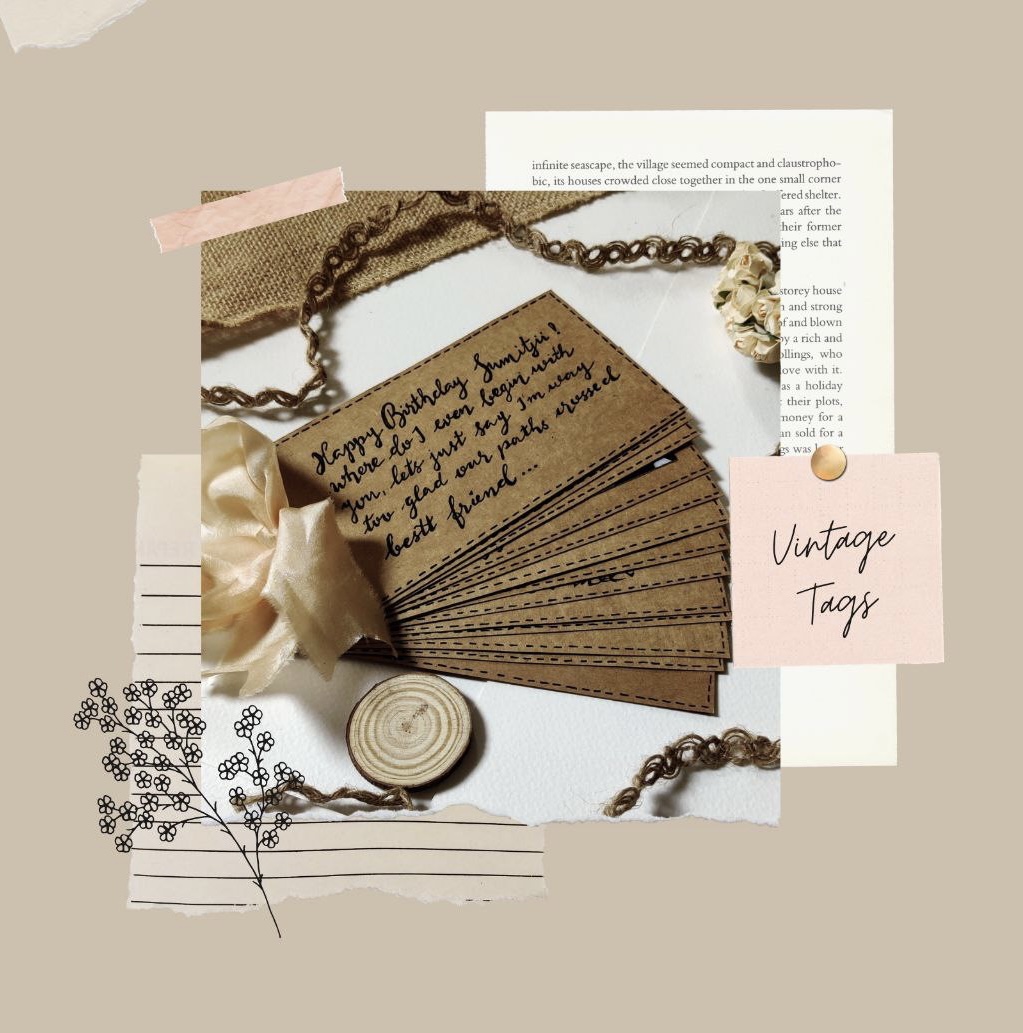 infinite seascape, the village seemed compact and claustropho-
bic, its houses crowded close together in the one small corner
fered shelter.
ars after the
heir former
ing else that
storey house
n and strong
of and blown
by a rich and
ollings, who
love with it.
as a holiday
their plots,
money for a
an sold for a
gs was
Happy Birthday Sumitjii!
where do I even begin with
you, lets just say I'm way
too glad our paths crossed
bestt friend...
Vintage
Tags